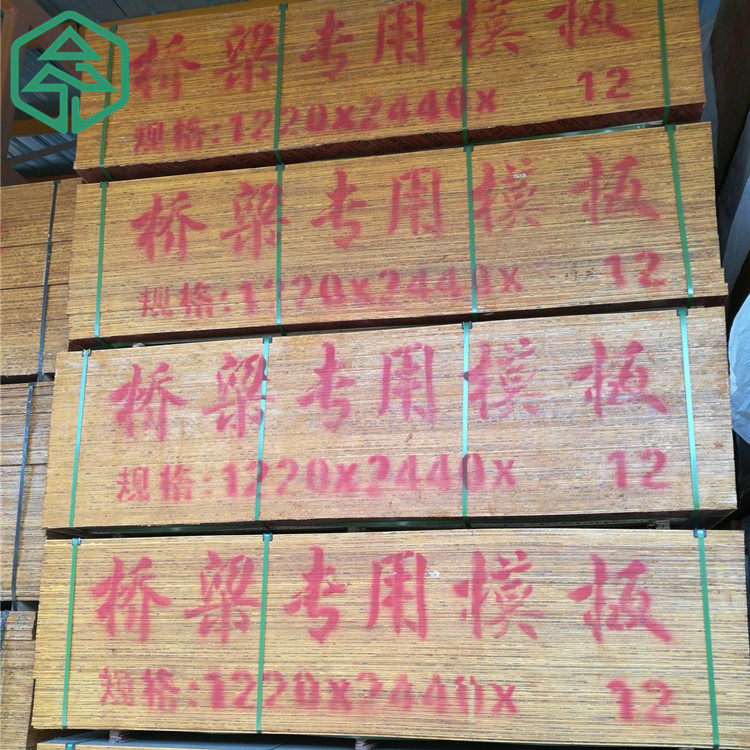 桥梁专用模板
规格:1220x2440x 12
桥梁专用模板
规格:1220x2440x 12
桥梁专用模板
规格:1220x2440x 12
桥梁专用模板
规格:1220x2440x 12